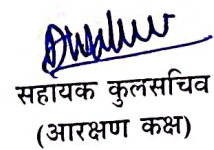 सहायक कुलसचिव
(आरक्षण कक्ष)